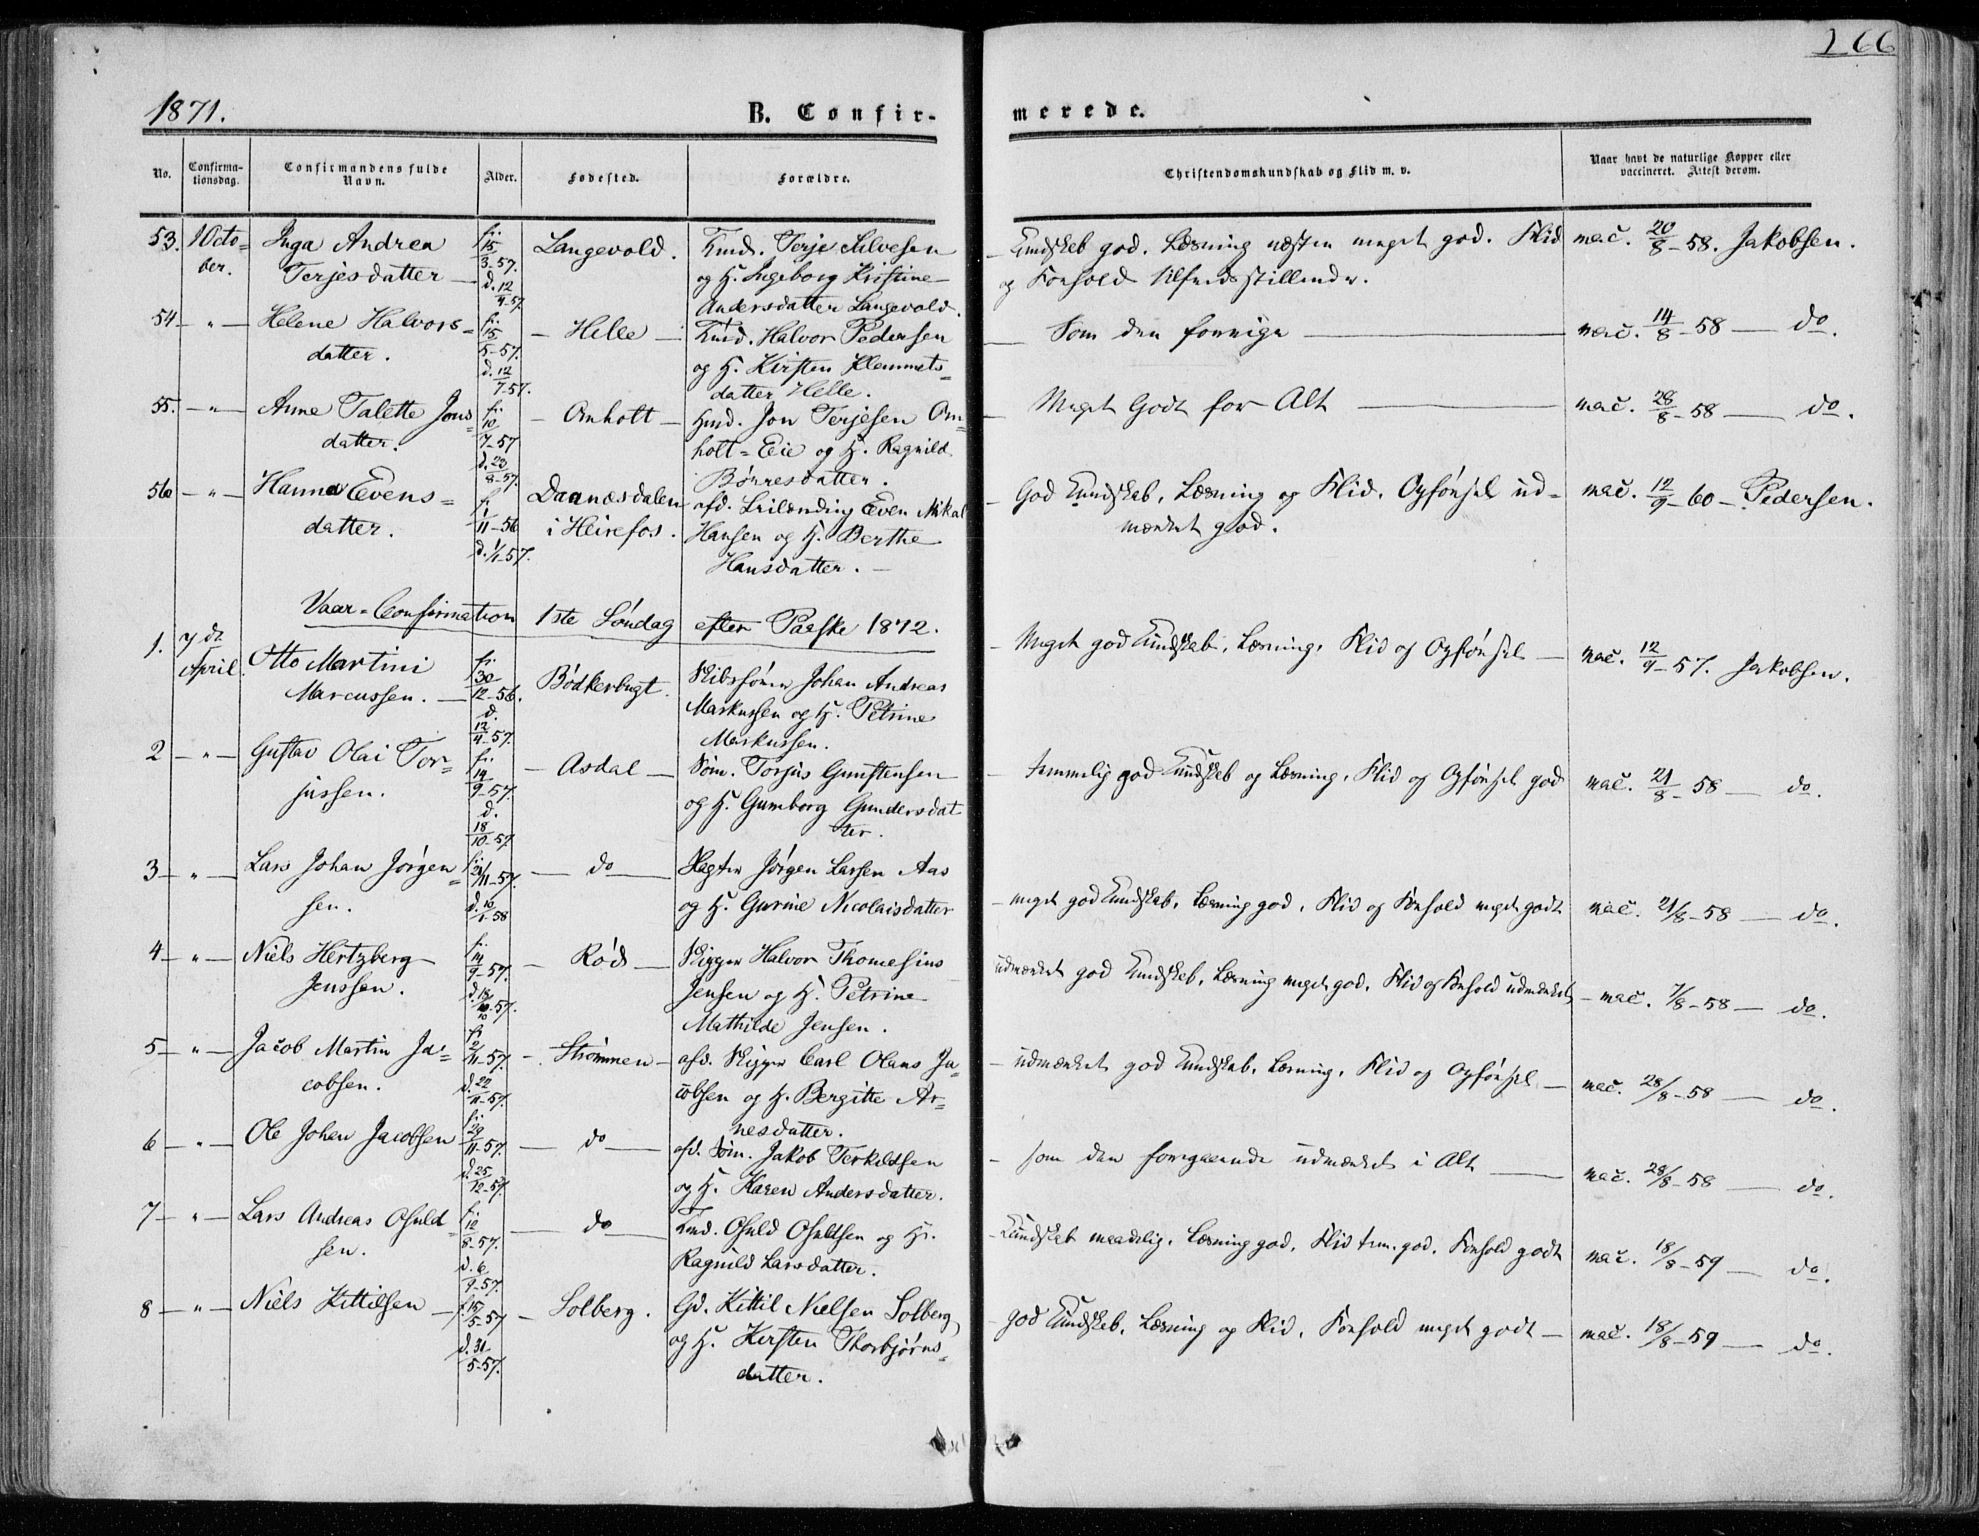 266
1871.
B. Confir-
merede.
No.
Confirma-
tionsdag.
Confirmandens fulde
Navn.
Alder.
Fødested.
Forældre.
Christendomskundskab og Flid m. v.
Naar havt de naturlige Kopper eller
vaccineret. Attest derom.
53. 1 Octo- Inga Andrea f. 15/3-57. Langevold. Kmd. Terje Silvesen
ber. Terjesdatter — d. 12/4-57. og H. Ingeborg Kristine
Andersdatter Langevold.
Kundskab god. Læsning næsten meget god. Flid
og Forhold tilfredsstillende.
vac. 20/8-58. Jakobsen.
54 — " — Helene Halvors= f. 15/5-57. — Helle — Kmd. Halvor Pedersen
datter. d. 12/7-57. og H. Kirsten Klemmets=
datter Helle.
Som den forrige — vac. 14/8-58 — do.
55. — " — Anne Talette Jons= f. 10/7-57 — Omholt — Hmd. Jon Terjesen Om=
datter. d. 23/8-57. holt=Eie og H. Ragnild
Børresdatter.
Meget Godt for Alt — vac. 28/8-58 — do.
56 — " — Hanna Evens= f. 1/11-56 Daanæsdalen afd. Leilænding Even Nikal
datter. d. 1/1-57. i Heirefos. Hansen og H. Berthe
Hansdatter. —
God Kundskab, Læsning og Flid. Opførsel ud-
mærket god.
vac. 12/9-60 — Pedersen.
Vaar=Confirmation 1ste Søndag efter Paaske 1872.
1. 7de Otto Martini f. 30/12-56. Bødkerbugt. Skibsfører Johan Andreas
April. Marcussen. — d. 12/4-57. Markussen og H. Petrine
Markussen.
Meget god Kundskab, Læsning, Flid og Opførsel — vac. 12/9-57. Jakobsen.
2 — " — Gustav Olai Tor= f. 14/9-57. — Asdal — Søm. Torjus Gunstensen
jussen. d. 18/10-57 og H. Gumborg Gundersdat
ter.
temmelig god Kundskab og Læsning, Flid og Opførsel god vac. 21/8-58 — do.
3 — " — Lars Johan Jørgen= /11-57. — do — Jørgen Larsen Aas
sen. d. 10/1-58 og H. Gurine Nicolaisdatter
meget god Kundskab, Læsning god, Flid og Forhold meget godt vac. 21/8-58 — do.
4 — " — Niels Hertzberg f. 14/9-57. — Rød — Skipper Halvor Thomesius
Jenssen. d. 18/10-57. Jensen og H. Petrine
Mathilde Jensen.
udmærket god Kundskab, Læsning meget god, Flid og Forhold udmærket — vac. 7/8-58 — do.
5 — " — Jacob Martin Ja= f. 2/11-57. — Strømmen — afd. Skipper Carl Olaus Ja=
cobsen. d. 22/11-57. cobsen og H. Bergitte Ar=
nesdatter.
— udmærket god Kundskab, Læsning, Flid og Opførsel — vac. 28/8-58 — do.
6 — " — Ole Johan Jacobsen f. 29/11-57. — do — afd. Søm. Jakob Terkildsen
d. 25/12-57. og H. Karen Andersdatter.
— som den foregaaende udmærket i Alt — vac. 28/8-58 — do.
7 — " — Lars Andreas Osuld= f. 10/8-57. — do — Kmd. Osuld Osuldsen og H.
sen. d. 6/9-57. Ragnild Larsdatter.
Kundskab maadelig, Læsning god, Flid tem. god, Forhold godt vac. 18/8-59 — do.
8 — " — Niels Kittilsen — f. 15/5-57 — Solberg. Gd. Kittil Nielsen Solberg
d. 31/5-57. og H. Kirsten Thorbjørns=
datter.
god Kundskab, Læsning og Flid, Forhold meget godt — vac. 18/8-59 — do.